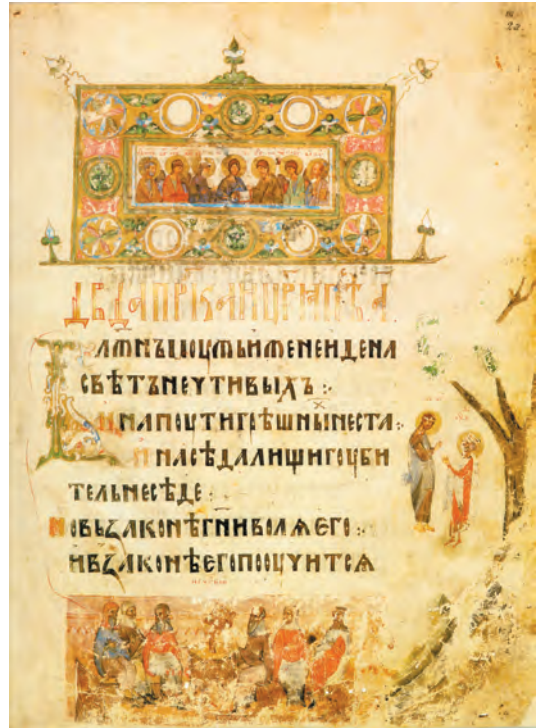 23.
ДВДА ПРРКА И ЦРѦ ПѢС А
БЛЖНЪ МОУЖЬ ИЖЕ НЕ ИДЕ НА
СВѢТЪ НЕЧТИВЫХЪ :·
И НА ПОУТИ ГРѢШНЫХ НЕ СТА :·
И НА СѢДАЛИЩИ ГОУБИ
ТЕЛЬ НЕ СѢДЕ :·
НО ВЬ ЗАКОНѢ ГНИ ВОЛѦ ЕГО :·
И В ЗАКОНѢ ЕГО ПООУЧИТСѦ